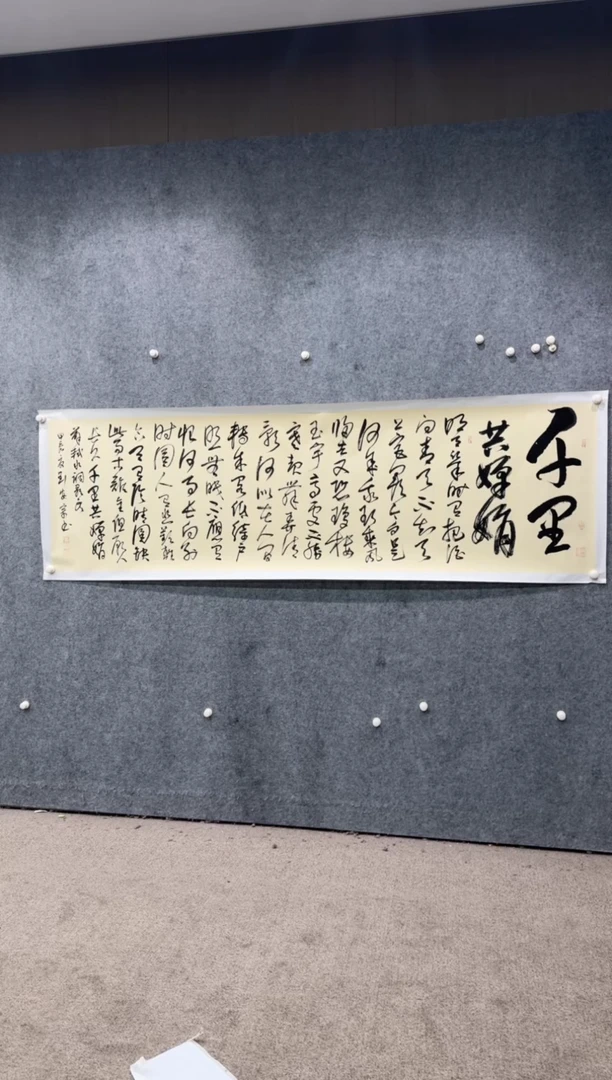 千里
共嬋娟
明月幾時有把酒
问青天不知天
上宫阙今夕是
何年我欲乘风
归去又恐琼楼
玉宇高處不勝
寒起舞弄清
影何似在人间
转朱阁低绮户
照無眠不應有
恨何事长向别
时圆人有悲歡離
合月有陰晴圆缺
此事古難全但願人
長久千里共嬋娟